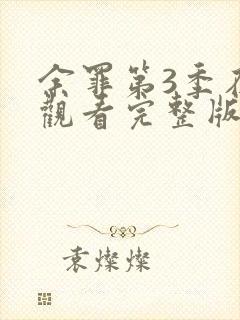 余罪第3季在
觀看完整版
袁燦燦